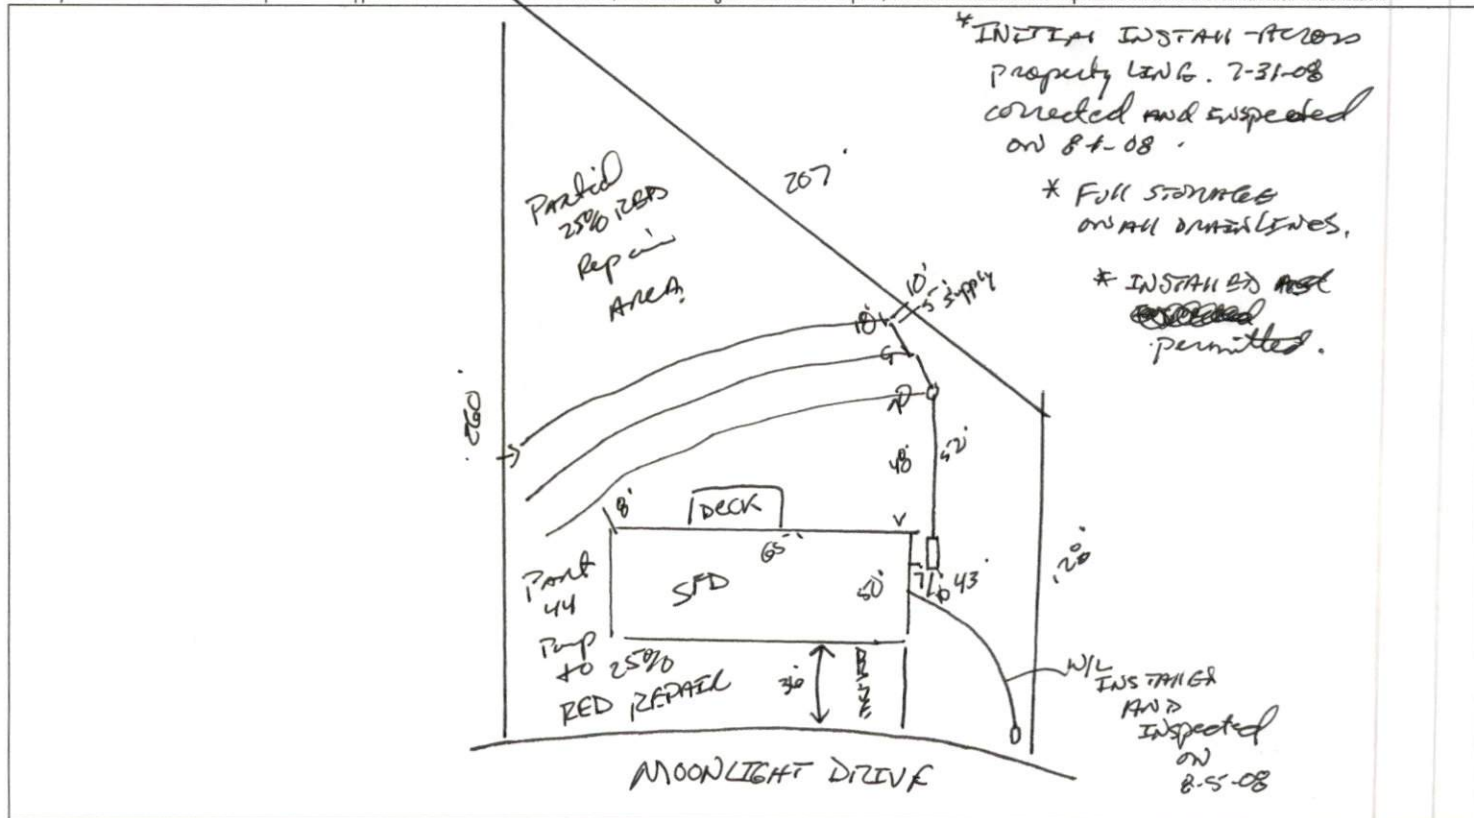 *INITIAL INSTALL - ACROSS
property LINE. 7-31-08
corrected AND inspected
on 8-1-08.
* FULL STORAGE
ON ALL DRAINLINES.
* INSTALLED
permitted.
207'
Partial
25% RED
Repair
AREA
10'
5' supply
18'
260'
48'
52'
8'
DECK
V
65'
SFD
50'
7'
43'
120'
Part
44
Pump
to 25%
RED REPAIR
36'
DRIVE
W/L
INSTALLED
AND
Inspected
on
8-5-08
MOONLIGHT DRIVE